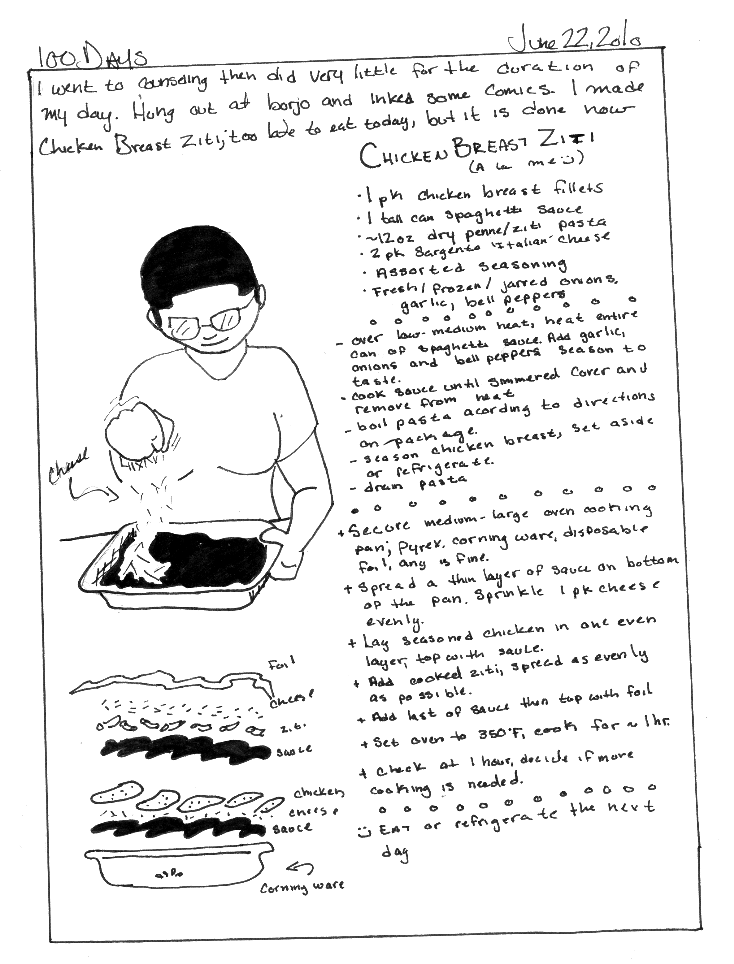 100 Days
June 22, 2010
I went to counseling then did very little for the duration of
my day. Hung out at borjo and inked some comics. I made
Chicken Breast Ziti; too late to eat today, but it is done now
Chicken Breast Ziti
(A la me :))
· 1 pk chicken breast fillets
· 1 tall can spaghetti sauce
· ~12oz dry penne/ziti pasta
· 2 pk Sargento "Italian" cheese
· Assorted seasoning
· Fresh/frozen/jarred onions,
garlic, bell peppers
- over low-medium heat, heat entire
can of spaghetti sauce. Add garlic,
onions and bell peppers season to
taste.
- cook sauce until simmered cover and
remove from heat
- boil pasta acording to directions
on package.
- season chicken breast, set aside
or refrigerate.
- drain pasta
+ Secure medium-large oven cooking
pan; Pyrex, corning ware, disposable
foil, any is fine.
+ Spread a thin layer of sauce on bottom
of the pan. Sprinkle 1 pk cheese
evenly.
+ Lay seasoned chicken in one even
layer, top with sauce.
+ Add cooked ziti, spread as evenly
as possible.
+ Add last of sauce then top with foil
+ Set oven to 350°F, cook for ~1hr.
+ Check at 1 hour, decide if more
cooking is needed.
:) Eat or refrigerate the next
day
cheese
foil
cheese
ziti
sauce
chicken
cheese
sauce
Corning ware